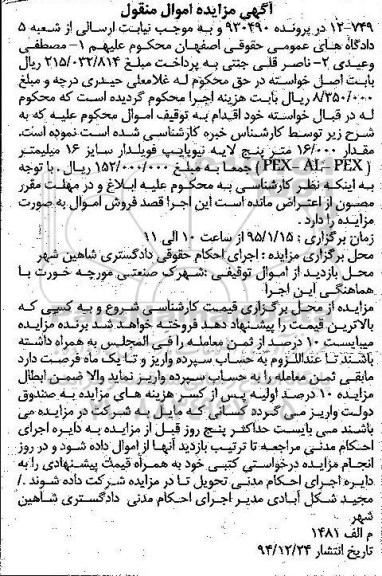 آگهی مزایده اموال منقول
۱۲-۷۴۹ در پرونده ۹۳۰۴۹۰ و به موجب نیابت ارسالی از شعبه ۵
دادگاه های عمومی حقوقی اصفهان محکوم علیهم ۱- مصطفی
وعیدی ۲- ناصر قلی جنتی به پرداخت مبلغ ۲۱۵/۰۳۲/۸۱۴ ریال
بابت اصل خواسته در حق محکوم له غلامعلی حیدری درچه و مبلغ
۸/۳۵۰/۰۰۰ ریال بابت هزینه اجرا محکوم گردیده است که محکوم
له در قبال خواسته خود اقدام به توقیف اموال محکوم علیه که به
شرح زیر توسط کارشناس خبره کارشناسی شده است نموده است.
مقدار ۱۶/۰۰۰ متر پنج لایه نیوپایپ فویلدار سایز ۱۶ میلیمتر
( PEX -AL- PEX ) جمعا به مبلغ ۱۵۲/۰۰۰/۰۰۰ ریال. با توجه
به اینکه نظر کارشناسی به محکوم علیه ابلاغ و در مهلت مقرر
مصون از اعتراض مانده است این اجرا قصد فروش اموال به صورت
مزایده را دارد.
زمان برگزاری : ۹۵/۱/۱۵ از ساعت ۱۰ الی ۱۱
محل برگزاری مزایده : اجرای احکام حقوقی دادگستری شاهین شهر
محل بازدید از اموال توقیفی :شهرک صنعتی مورچه خورت با
هماهنگی این اجرا
مزایده از محل برگزاری قیمت کارشناسی شروع و به کسی که
بالاترین قیمت را پیشنهاد دهد فروخته خواهد شد برنده مزایده
میبایست ۱۰ درصد از ثمن معامله را فی المجلس به همراه داشته
باشند تا عنداللزوم به حساب سپرده واریز و تا یک ماه فرصت دارد
مابقی ثمن معامله را به حساب سپرده واریز نماید والا ضمن ابطال
مزایده ۱۰ درصد اولیه پس از کسر هزینه های مزایده به صندوق
دولت واریز می گردد کسانی که مایل به شرکت در مزایده می
باشند می بایست حداکثر پنج روز قبل از مزایده به دایره اجرای
احکام مدنی مراجعه تا ترتیب بازدید آنها از اموال داده شود و در روز
انجام مزایده درخواستی کتبی خود به همراه قیمت پیشنهادی را به
دایره اجرای احکام مدنی تحویل تا در مزایده شرکت داده شوند ./
مجید شکل آبادی مدیر اجرای احکام مدنی دادگستری شاهین
شهر
م الف ۱۴۸۱
تاریخ انتشار ۹۴/۱۲/۲۴